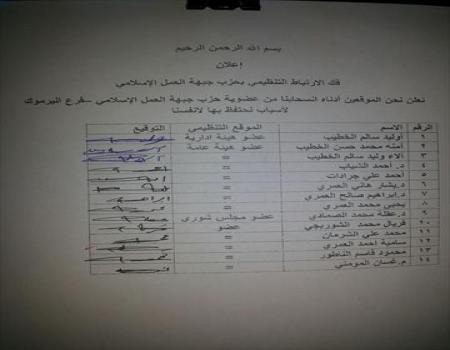 بسم الله الرحمن الرحيم
إعلان
فك الارتباط التنظيمي بحزب جبهة العمل الإسلامي
نعلن نحن الموقعين أدناه انسحابنا من عضوية حزب جبهة العمل الإسلامي – فرع اليرموك
لأسباب نحتفظ بها لأنفسنا
الرقم الاسم الموقع التنظيمي التوقيع
١ أوليد سالم الخطيب عضو هيئة ادارية
٢ أمنه محمد حسن الخطيب عضو هيئة عامة
٣ الاء وليد سالم الخطيب =
٤ د. احمد الشياب =
٥ احمد علي جرادات =
٦ د. بشار هاني العمري =
٧ د.ابراهيم صالح العمري =
٨ يحيى محمد العمري =
٩ د.عقلة محمد الصمادي عضو مجلس شورى
١٠ فريال محمد الشوربجي عضو
١١ محمد علي الشرمان =
١٢ سامية احمد العمري =
١٣ محمود قاسم الناطور =
١٤ م.غسان المومني =